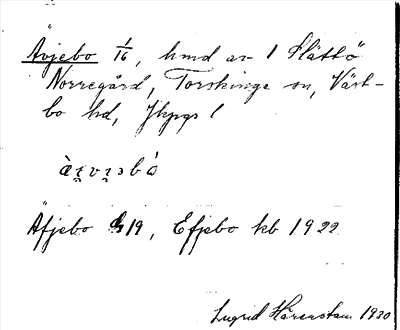 Ävjebo 1/16, hmd av 1 Slättö
Norregård, Torskinge sn, Väst-
bo hd, Jkpgs l
Äfjebo 19, Efjebo kb 1922
Ingrid Härenstam 1930